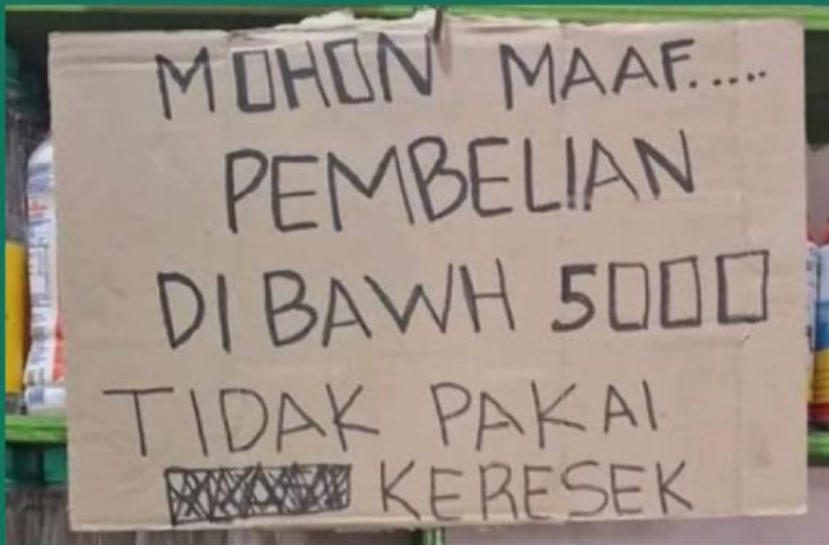 MOHON MAAF.....
PEMBELIAN
DI BAWH 5000
TIDAK PAKAI
KERESEK